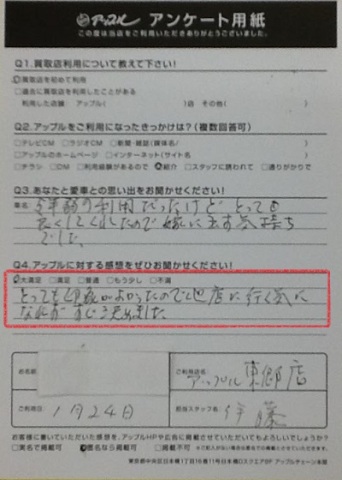 アップル アンケート用紙
この度は当店をご利用いただきありがとうございました。
Q1.買取店利用について教えて下さい!
□買取店を初めて利用
□過去に買取店を利用したことがある
利用した店舗: アップル( )店 その他( )
Q2.アップルをご利用になったきっかけは?(複数回答可)
□テレビCM □ラジオCM □新聞・雑誌(媒体名/ )
□アップルのホームページ □インターネット(サイト名 )
□チラシ □DM □利用経験があるので □紹介 □スタッフに誘われて □通りがかりで
Q3.あなたと愛車との思い出をお聞かせください!
車名: 5年語り利用だったけど とっても
良くしてくれたので嫁に出す気持ち
でした。
Q4.アップルに対する感想をぜひお聞かせください!
□大満足 □満足 □普通 □もう少し □不満
とっても印象がよかったので他店に行く気に
なれず 売りました
お名前
ご利用店名
アップル東郷店
ご利用日
1月24日
担当スタッフ名
伊藤
お客様に書いていただいた感想を、アップルHPや広告に掲載させていただいてもよろしいでしょうか?
□実名で掲載可 □匿名なら掲載可 □掲載不可
東京都中央区日本橋1丁目16番11号日本橋Dスクエア5F アップルチェーン本部